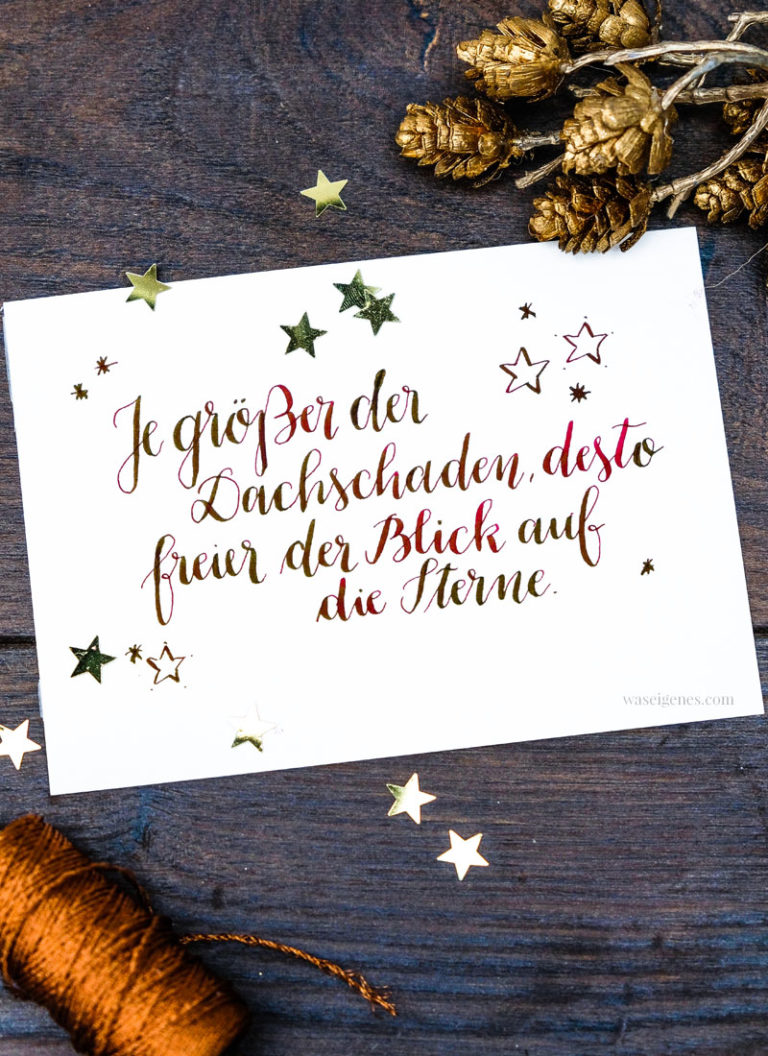 Je größer der
Dachschaden, desto
freier der Blick auf
die Sterne.
waseigenes.com